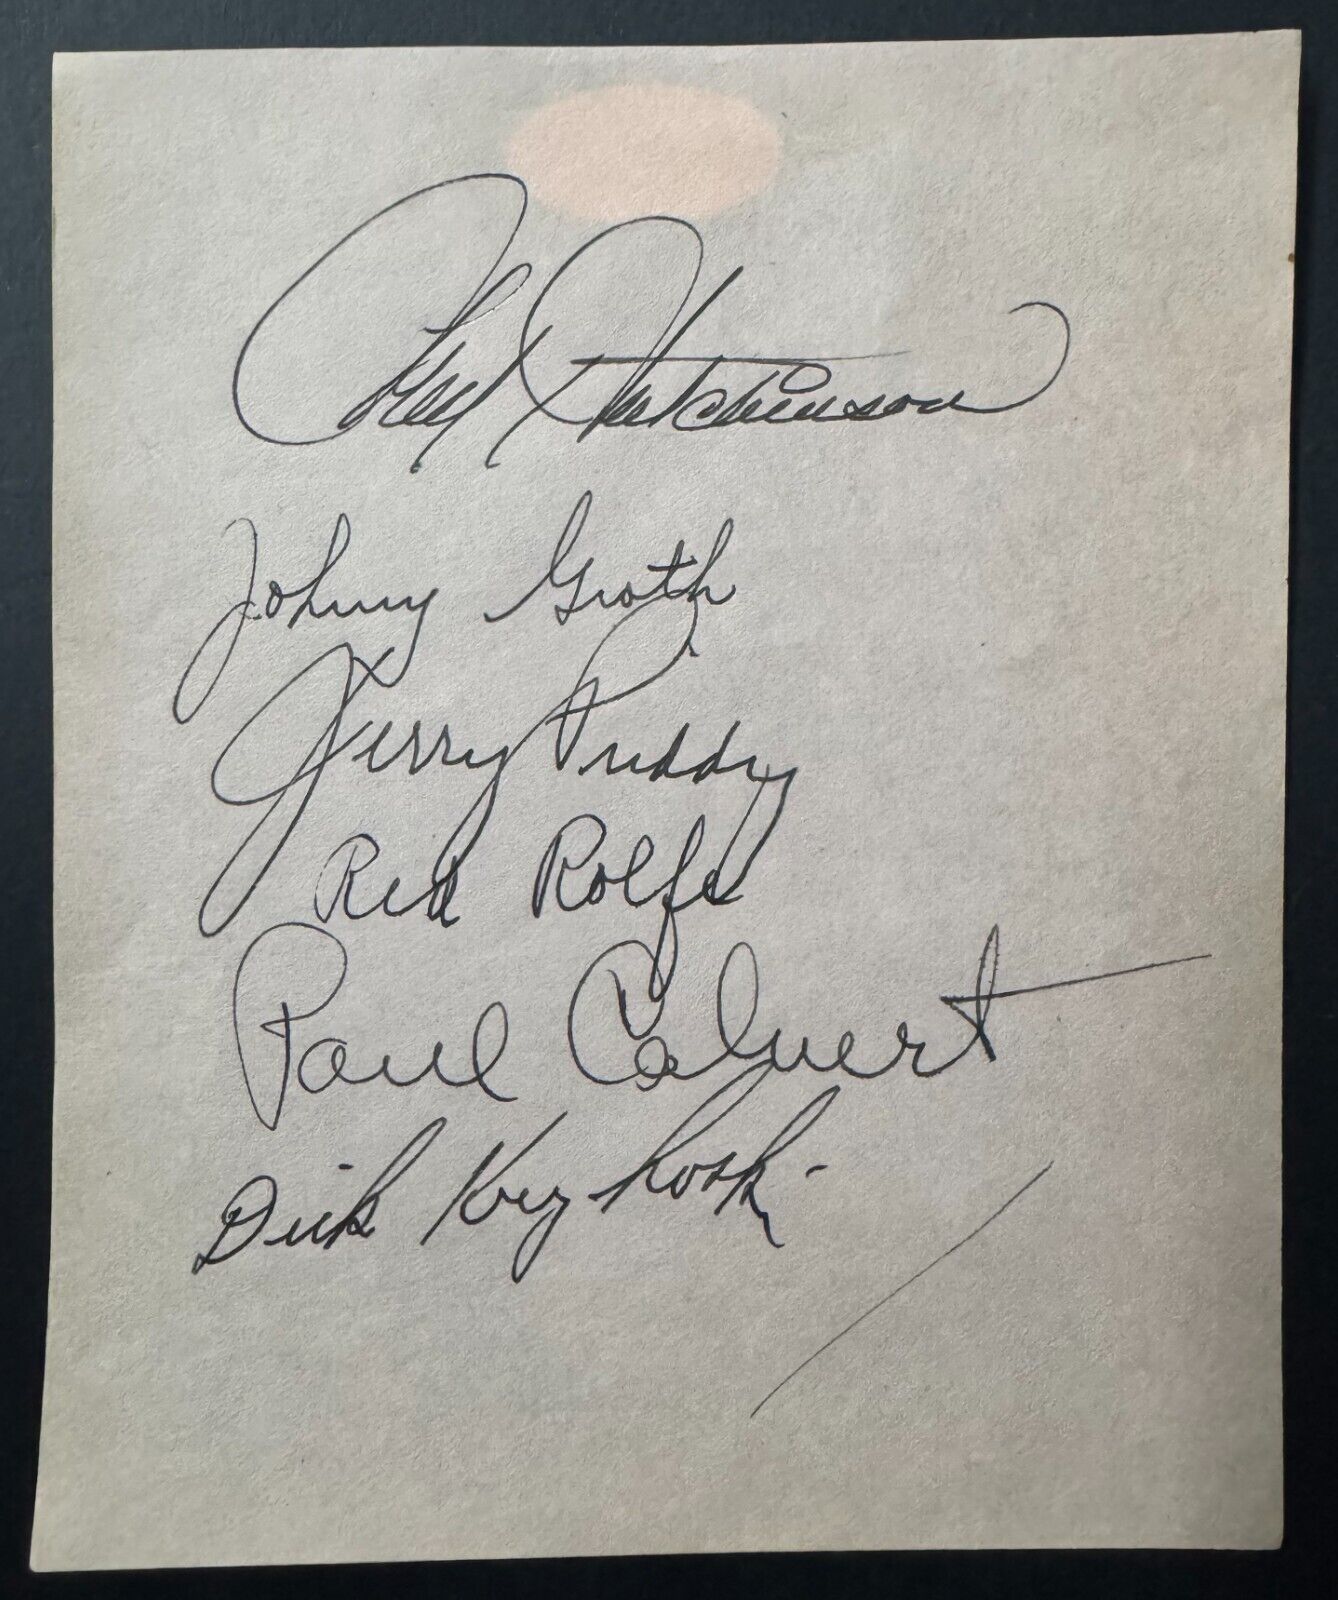 Fred Hutchinson
Johnny Groth
Jerry Priddy
Red Rolfe
Paul Calvert
Dick Kryhoski